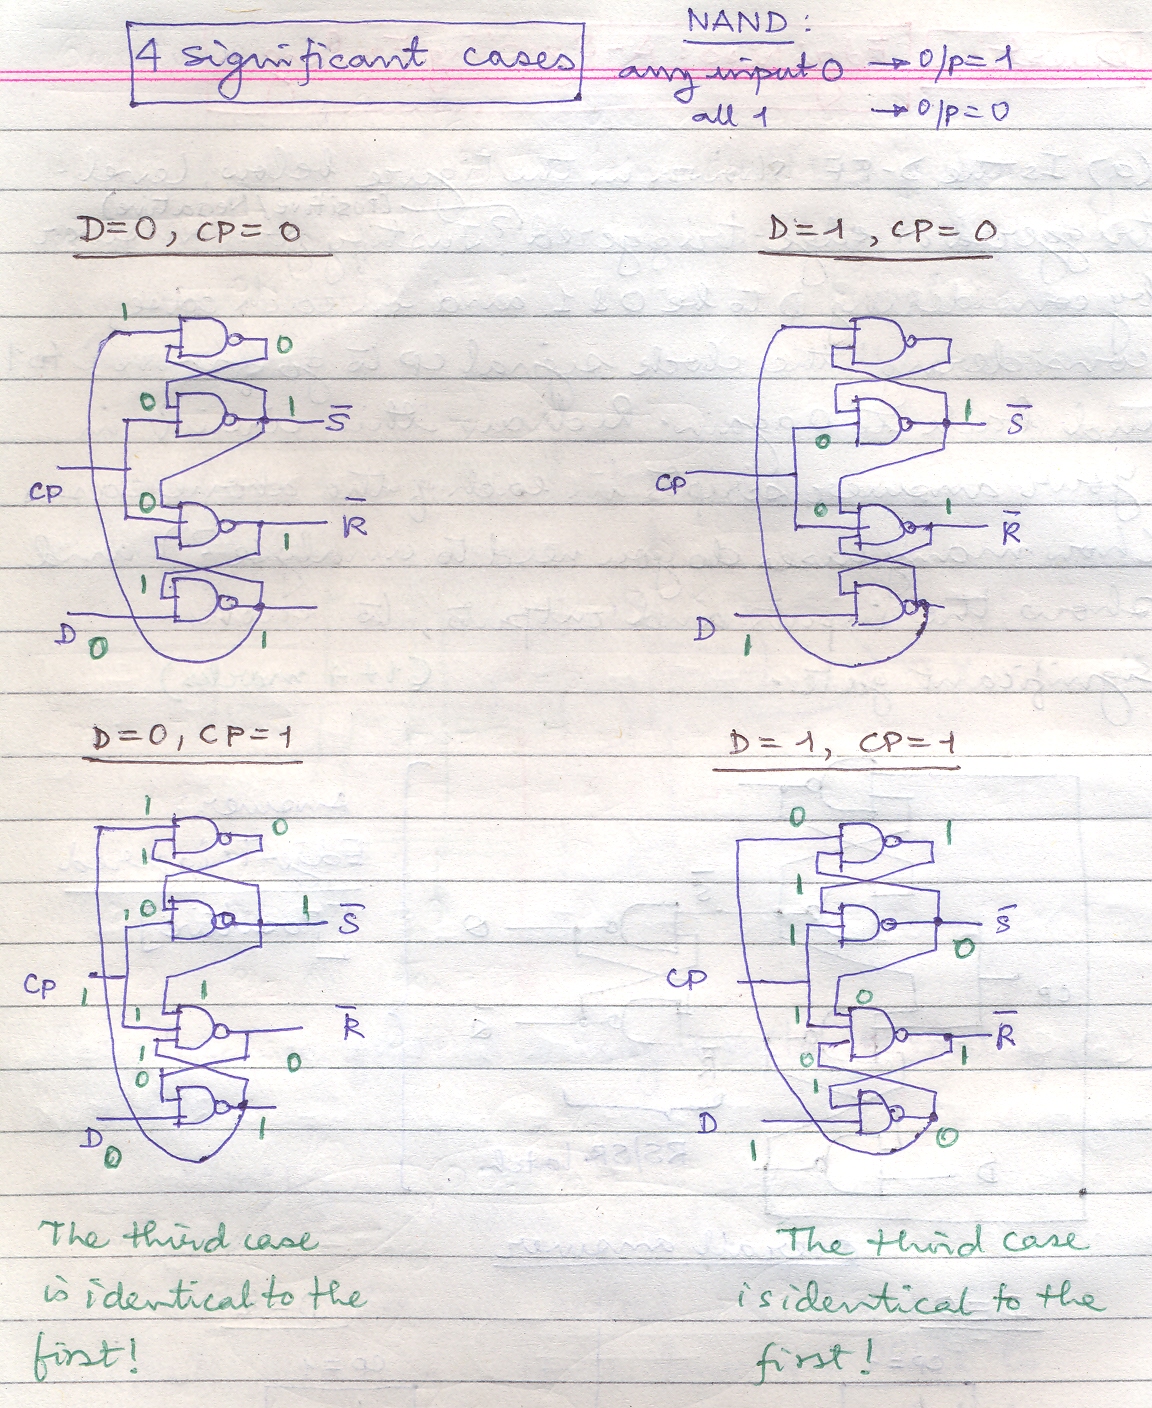 4 significant cases
NAND:
any input 0 → O/p = 1
all 1 → O/p = 0
D=0, CP= 0
D=1, CP= 0
1
0
0
1
S̅
CP
0
R̅
1
1
D
0
1
1
S̅
0
CP
0
1
R̅
D
1
D=0, CP=1
D=1, CP=1
1
0
1
0
1
S̅
CP
1
1
1
R̅
1
0
0
D
0
1
0
1
1
1
S̅
0
CP
0
1
R̅
0
1
1
D
1
0
The third case
is identical to the
first!
The third case
is identical to the
first!